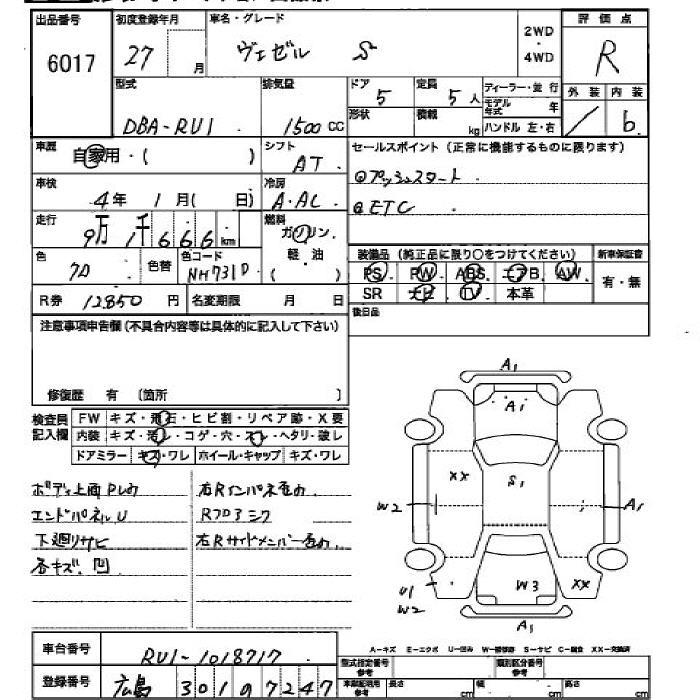 出品番号 初度登録年月 車名・グレード 評価点
6017 27 月 ヴェゼル S 2WD・4WD R
型式 排気量 ドア 定員 ディーラー・並行 外装 内装
DBA-RU1 1500 CC 5 5人 モデル年式 年 / b
形状 積載 kg ハンドル 左・右
車歴 自家用・( ) シフト AT セールスポイント (正常に機能するものに限ります)
車検 4年 1月( 日) 冷房 A・AC ◎プッシュスタート
走行 9万1千666km 燃料 ガソリン・軽・油 ( ) ◎ETC
装備品 (純正品に限り○をつけてください) 新車保証書
色 クロ 色替 色コード NH731P PS PW ABS エアB AW 有・無
R券 12850円 名変期限 月 日 SR ナビ TV 本革
後日品
注意事項申告欄(不具合内容等は具体的に記入して下さい)
修復歴 有 〔箇所 〕
検査員記入欄 FW キズ・飛石・ヒビ割・リペア跡・X要
内装 キズ・汚レ・コゲ・穴・スレ・ヘタリ・破レ
ドアミラー キズ・ワレ ホイール・キャップ キズ・ワレ
ボディ上面
エンドパネルU
下廻りサビ
各キズ、凹
右Rインパネ
右Rサイドメンバー
A1
A1
XX S1
W2 A1
U1 W2 W3 XX
A1
A-キズ E-エクボ U-凹み W-補修跡 S-サビ C-腐食 XX-交換済
車台番号 RU1-1018717
型式指定番号 参考 類別区分番号 参考
登録番号 広島 301 の 7247
車庫証明用 参考 長さ cm 幅 cm 高さ cm